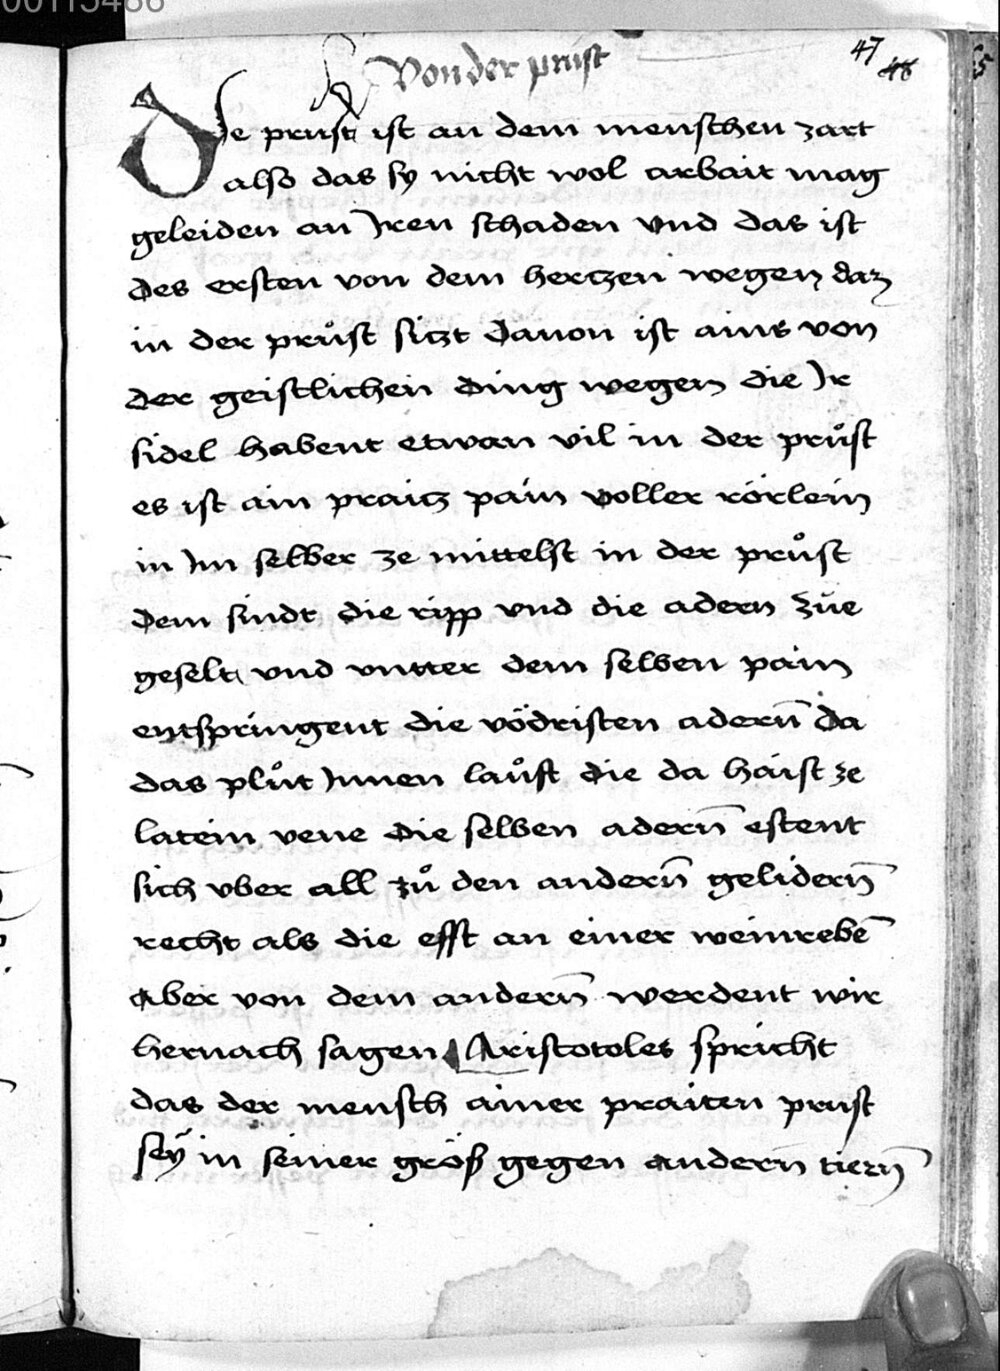 00115486
Von der prust
47 48
De prust ist an dem menschen zart
also das sy nicht wol arbait mag
geleiden an Jren schaden vnd das ist
des ersten von dem hertzen wegen daz
in der průst sitzt Dauon ist ains von
der geistlichen ding wegen die Jr
sidel habent etwan vil in der průst
es ist ain praitz pain voller rörlein
in Jm selber ze mittelst in der průst
dem sindt die ripp vnd die adern zue
geselt vnd vntter dem selben pain
entspringent die vödristen adern̄ Da
das plůt Jnnen laůft die da haist ze
latein vene die selben adern̄ estent
sich vber all zů den andern̄ gelidern̄
recht als die efft an einer weinrebe̅
Aber von dem andern̄ werdent wir
hernach sagen Aristotoles spricht
das der mensch ainer praiten prust
seÿ in seiner größ gegen andern tiern̄